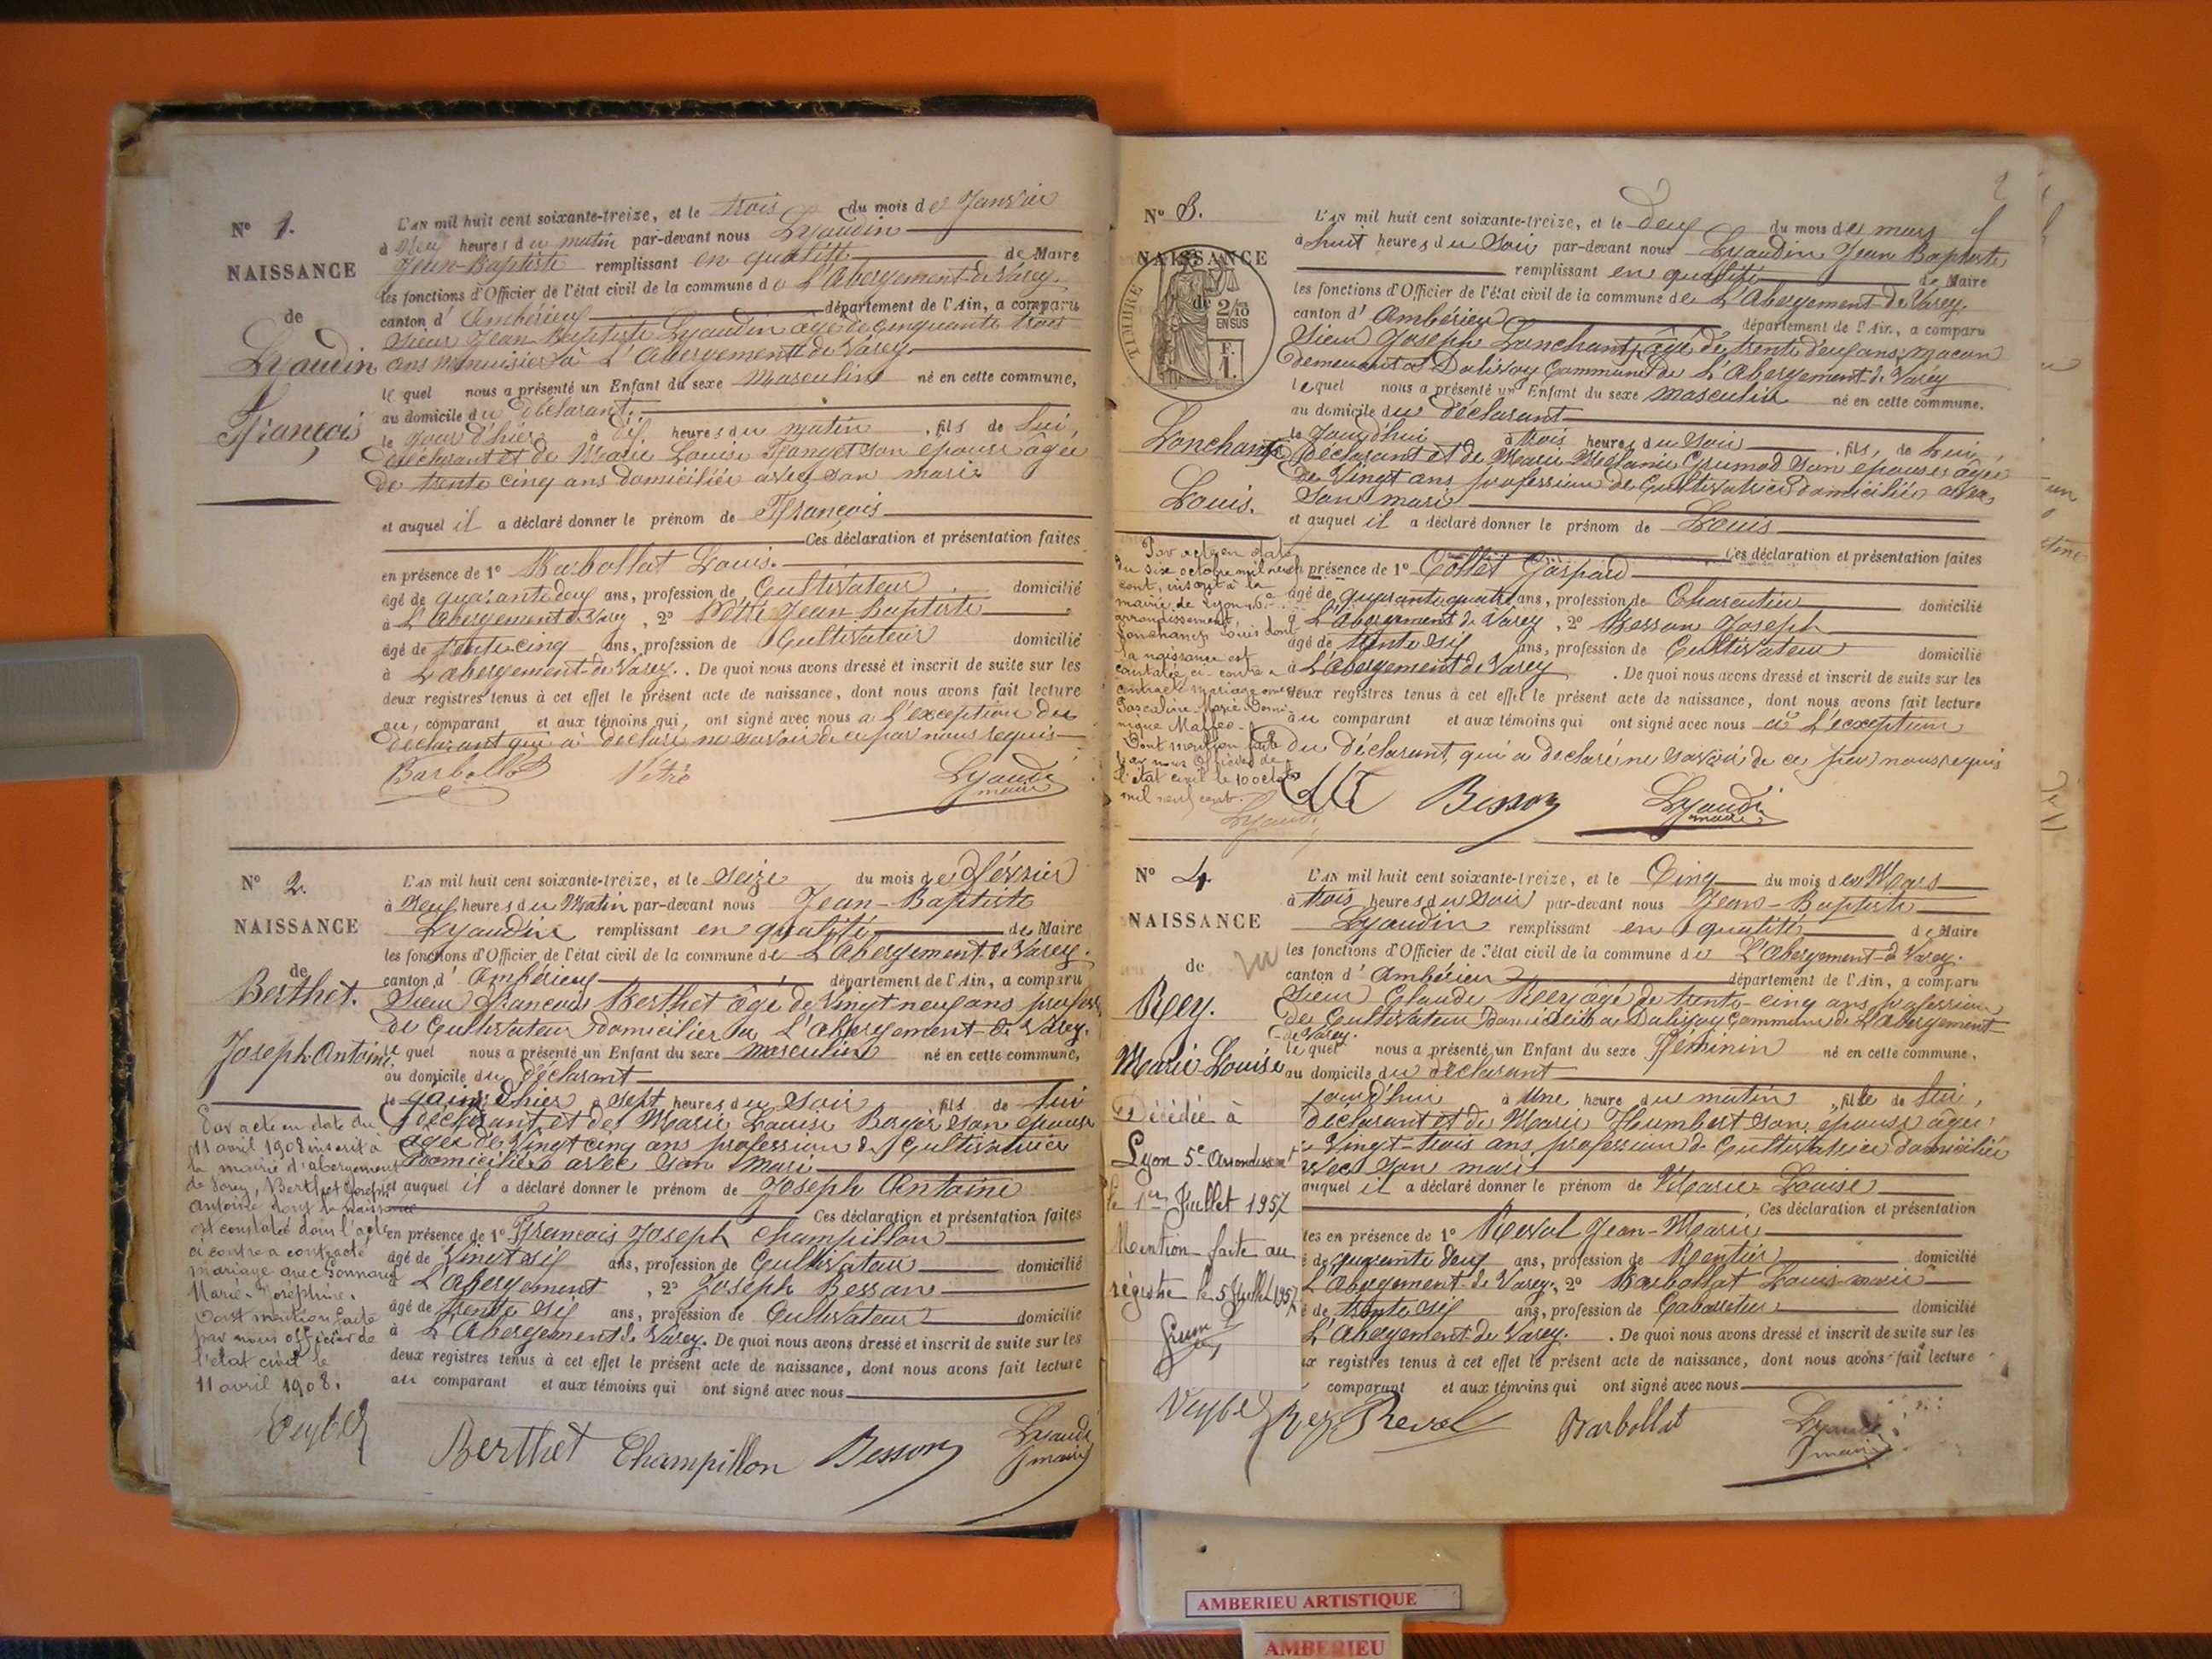 N° 1.
NAISSANCE
de
Lyaudin
François
L'AN mil huit cent soixante-treize, et le trois du mois de Janvier
à neuf heures du matin par-devant nous Lyaudin
Jean-Baptiste remplissant en qualité de Maire
les fonctions d'Officier de l'état civil de la commune de L'Abergement-de Varey.
canton d' Ambérieu département de l'Ain, a comparu
Sieur Jean-Baptiste Lyaudin âgé de Cinquante trois
ans Menuisier à L'Abergement de Varey
le quel nous a présenté un Enfant du sexe Masculin né en cette commune,
au domicile du déclarant.
le jour d'hier à dix heures du matin, fils de lui,
déclarant et de Marie Louise son épouse âgée
de trente cinq ans domiciliée avec son mari
et auquel il a déclaré donner le prénom de François
Ces déclaration et présentation faites
en présence de 1° Barbollat Louis.
âgé de quarante deux ans, profession de Cultivateur domicilié
à L'Abergement de Varey, 2° Vétré Jean-Baptiste
âgé de trente cinq ans, profession de Cultivateur domicilié
à L'abergement-de Varey. De quoi nous avons dressé et inscrit de suite sur les
deux registres tenus à cet effet le présent acte de naissance, dont nous avons fait lecture
au, comparant et aux témoins qui, ont signé avec nous a L'exception du
déclarant qui a déclaré ne savoir de ce par nous requis
Barbollat Vétré Lyaudi
maire
N° 2.
NAISSANCE
de
Berthet.
Joseph Antoine
L'AN mil huit cent soixante-treize, et le seize du mois de Février
à Neuf heures du Matin par-devant nous Jean-Baptiste
Lyaudin remplissant en qualité de Maire
les fonctions d'Officier de l'état civil de la commune de L'Abergement de Varey.
canton d' Ambérieux département de l'Ain, a comparu
Sieur Francois Berthet âgé de Vingt neuf ans profess
de Cultivateur domicilier à L'Abergement de Varey.
le quel nous a présenté un Enfant du sexe masculin né en cette commune,
au domicile du déclarant
le jour d'hier à sept heures du soir, fils de lui
déclarant et de Marie Louise Boyer son épouse
agée de Vingt cinq ans profession de Cultivatrice
domiciliée avec son mari
et auquel il a déclaré donner le prénom de Joseph Antoine
Ces déclaration et présentation faites
en présence de 1° Francois Joseph Champillon
âgé de Vingt six ans, profession de Cultivateur domicilié
L'Abergement, 2° Joseph Besson
âgé de trente six ans, profession de Cultivateur domicilié
à L'Abergement de Varey. De quoi nous avons dressé et inscrit de suite sur les
deux registres tenus à cet effet le présent acte de naissance, dont nous avons fait lecture
au comparant et aux témoins qui ont signé avec nous
Par acte en date du
11 avril 1908 inscrit à
la mairie d'abergement
de Varey, Berthet Joseph
Antoine dont la naissance
est constatée dans l'acte
ci contre a contracté
mariage avec
Marie-Joséphine.
Dont mention faite
par nous officier de
l'état civil le
11 avril 1908.
Berthet Champillon Besson Lyaudi
maire
N° 3.
NAISSANCE
de
TIMBRE
2/10
EN SUS
F.
1.
Lonchamp
Louis.
L'AN mil huit cent soixante-treize, et le deux du mois de mars
à huit heures du soir par-devant nous Lyaudin Jean Baptiste
remplissant en qualité de Maire
les fonctions d'Officier de l'état civil de la commune de L'Abergement-de Varey.
canton d' Ambérieu département de l'Ain, a comparu
Sieur Joseph Lonchamp, âgé de trente deux ans, macon
demeurant à Dalivoy Commune de L'Abergement-de Varey
lequel nous a présenté un Enfant du sexe masculin né en cette commune.
au domicile du déclarant
le Jourd'hui à trois heures du soir, fils, de lui,
déclarant et de Marie Mélanie Grumod son épouse âgée
de Vingt ans profession de Cultivatrice domiciliée avec
Son mari
et auquel il a déclaré donner le prénom de Louis
Ces déclaration et présentation faites
présence de 1° Collet Gaspard
âgé de quarante quatre ans, profession de Charentier domicilié
à L'Abergement de Varey, 2° Besson Joseph
âgé de trente six ans, profession de Cultivateur domicilié
à L'Abergement de Varey. De quoi nous avons dressé et inscrit de suite sur les
deux registres tenus à cet effet le présent acte de naissance, dont nous avons fait lecture
au comparant et aux témoins qui ont signé avec nous à L'exception
du déclarant, qui a déclaré ne savoir de ce par nous requis
Par acte en date
du six octobre mil neuf
cent, inscrit à la
mairie de Lyon
arrondissement,
Lonchamp Louis dont
la naissance est
constatée ci-contre a
contracté mariage avec
Pascaline Marie Domi-
nique Maffeo.
Dont mention faite
par nous Officier de
l'état civil le 10 octobre
mil neuf cent.
Besson Lyaudi
maire
N° 4.
NAISSANCE
de
Rey.
Marie Louise
L'AN mil huit cent soixante-treize, et le Cinq du mois de Mars
à trois heures du Soir par-devant nous Jean-Baptiste
Lyaudin remplissant en qualité de Maire
les fonctions d'Officier de l'état civil de la commune de L'Abergement-de Varey.
canton d' Ambérieu département de l'Ain, a comparu
Sieur Claude Rey âgé de trente-cinq ans profession
de Cultivateur Domicilié à Dalivoy Commune de L'Abergement
de Varey.
le quel nous a présenté un Enfant du sexe Féminin né en cette commune.
au domicile du déclarant
jourd'hui à Une heure du matin, fille de lui,
déclarant et de Marie Humbert son épouse âgée
Vingt-trois ans profession de Cultivatrice domiciliée
avec son mari
auquel il a déclaré donner le prénom de Marie-Louise
Ces déclaration et présentation
tes en présence de 1° Reval Jean-Marie
é de quarante deux ans, profession de Rentier domicilié
L'Abergement-de Varey, 2° Barbollat Louis-marie
é de trente six ans, profession de Cabaretier domicilié
L'Abergement de Varey. De quoi nous avons dressé et inscrit de suite sur les
ux registres tenus à cet effet le présent acte de naissance, dont nous avons fait lecture
comparant et aux témoins qui ont signé avec nous
Décédée à
Lyon 5e Arrondissemt
le 1er Juillet 1957
Mention faite au
régistre le 5 Juillet 1957
Rey Reval Barbollat Lyaudi
maire
AMBERIEU ARTISTIQUE
AMBERIEU